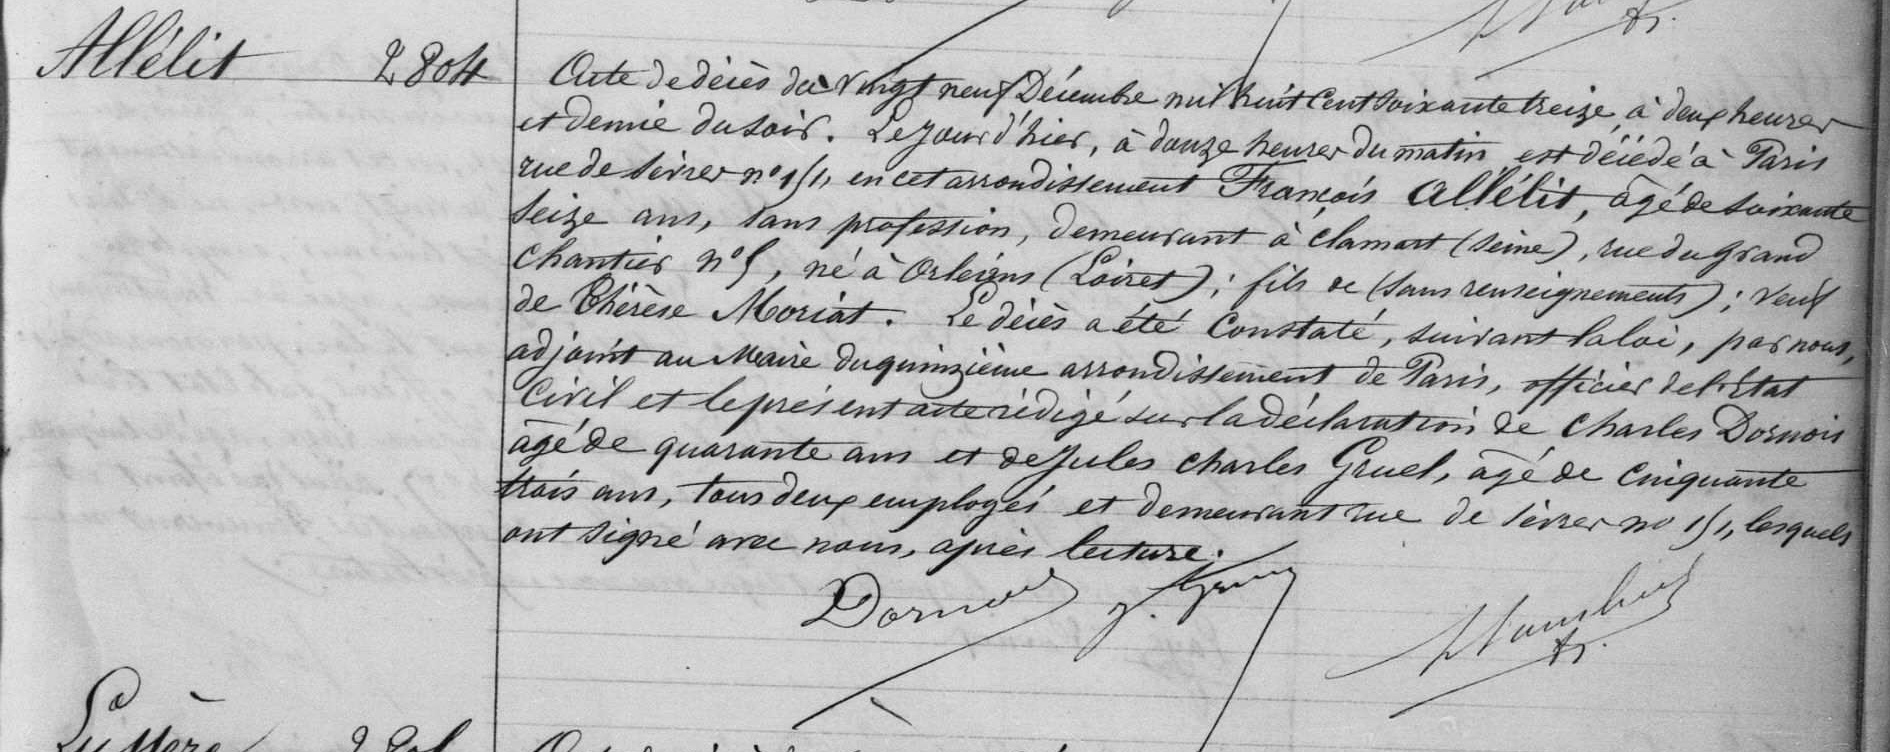 Allélit 2804
Acte de décès du Vingt neuf Décembre mil huit cent soixante treize, à deux heures
et demie du soir. Le jour d'hier, à douze heures du matin est décédé à Paris
rue de Sèvres n° 151, en cet arrondissement François Allélit, âgé de soixante
seize ans, sans profession, demeurant à Clamart (Seine), rue du Grand
Chantier n° 5, né à Orléans (Loiret); fils de (sans renseignements); veuf
de Thérèse Moriat. Le décès a été constaté, suivant la loi, par nous,
adjoint au Maire du quinzième arrondissement de Paris, officier de l'Etat
Civil et le présent acte rédigé sur la déclaration de Charles Dornois
âgé de quarante ans et de Jules Charles Gruel, âgé de cinquante
trois ans, tous deux employés et demeurant rue de Sèvres n° 151, lesquels
ont signé avec nous, après lecture.
Dornois J. Gruel